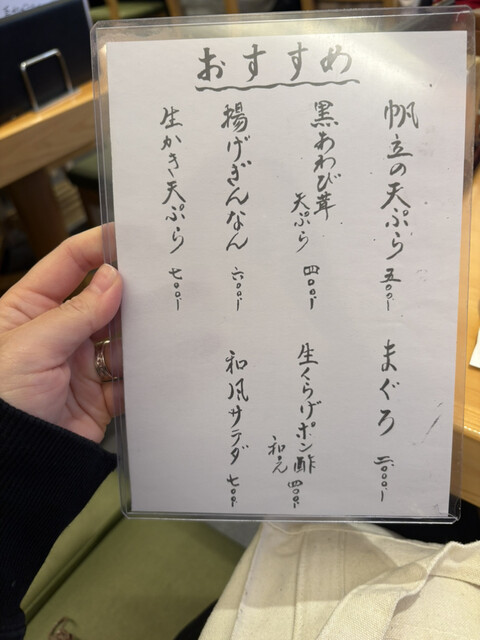 おすすめ
帆立の天ぷら 五〇〇-
まぐろ
黒あわび茸
天ぷら 四〇〇-
生くらげポン酢
和え 四〇〇-
揚げぎんなん 六〇〇-
和風サラダ 七〇〇-
生かき天ぷら 七〇〇-